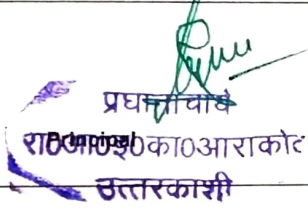 प्रधानाचार्य
रा0आ0इ0का0आराकोट
Principal
उत्तरकाशी